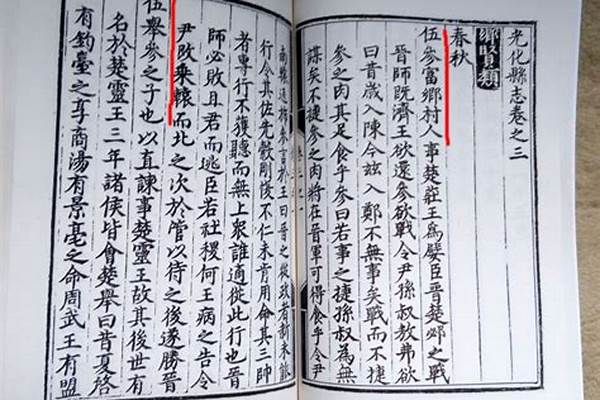 光化縣志卷之三
鄉賢類
春秋
伍參富鄉村人事楚莊王爲嬖臣晉楚邲之戰
晉師既濟王欲還參欲戰令尹孫叔敖弗欲
曰昔歲入陳今茲入鄭不無事矣戰而不捷
參之肉其足食乎參曰若事之捷孫叔爲無
謀矣不捷參之肉將在晉軍可得食乎令尹
南轅返旆參言於王曰晉之從政者新未能
行令其佐先縠剛愎不仁未肯用命其三帥
者專行不獲聽而無上衆誰適從此行也晉
師必敗且君而逃臣若社稷何王病之告令
尹改乘轅而北之次於管以待之後遂勝晉
伍舉參之子也以直諫事楚靈王故其後世有
名於楚靈王三年諸侯皆會楚舉曰昔夏啓
有鈞臺之享商湯有景亳之命周武王有盟